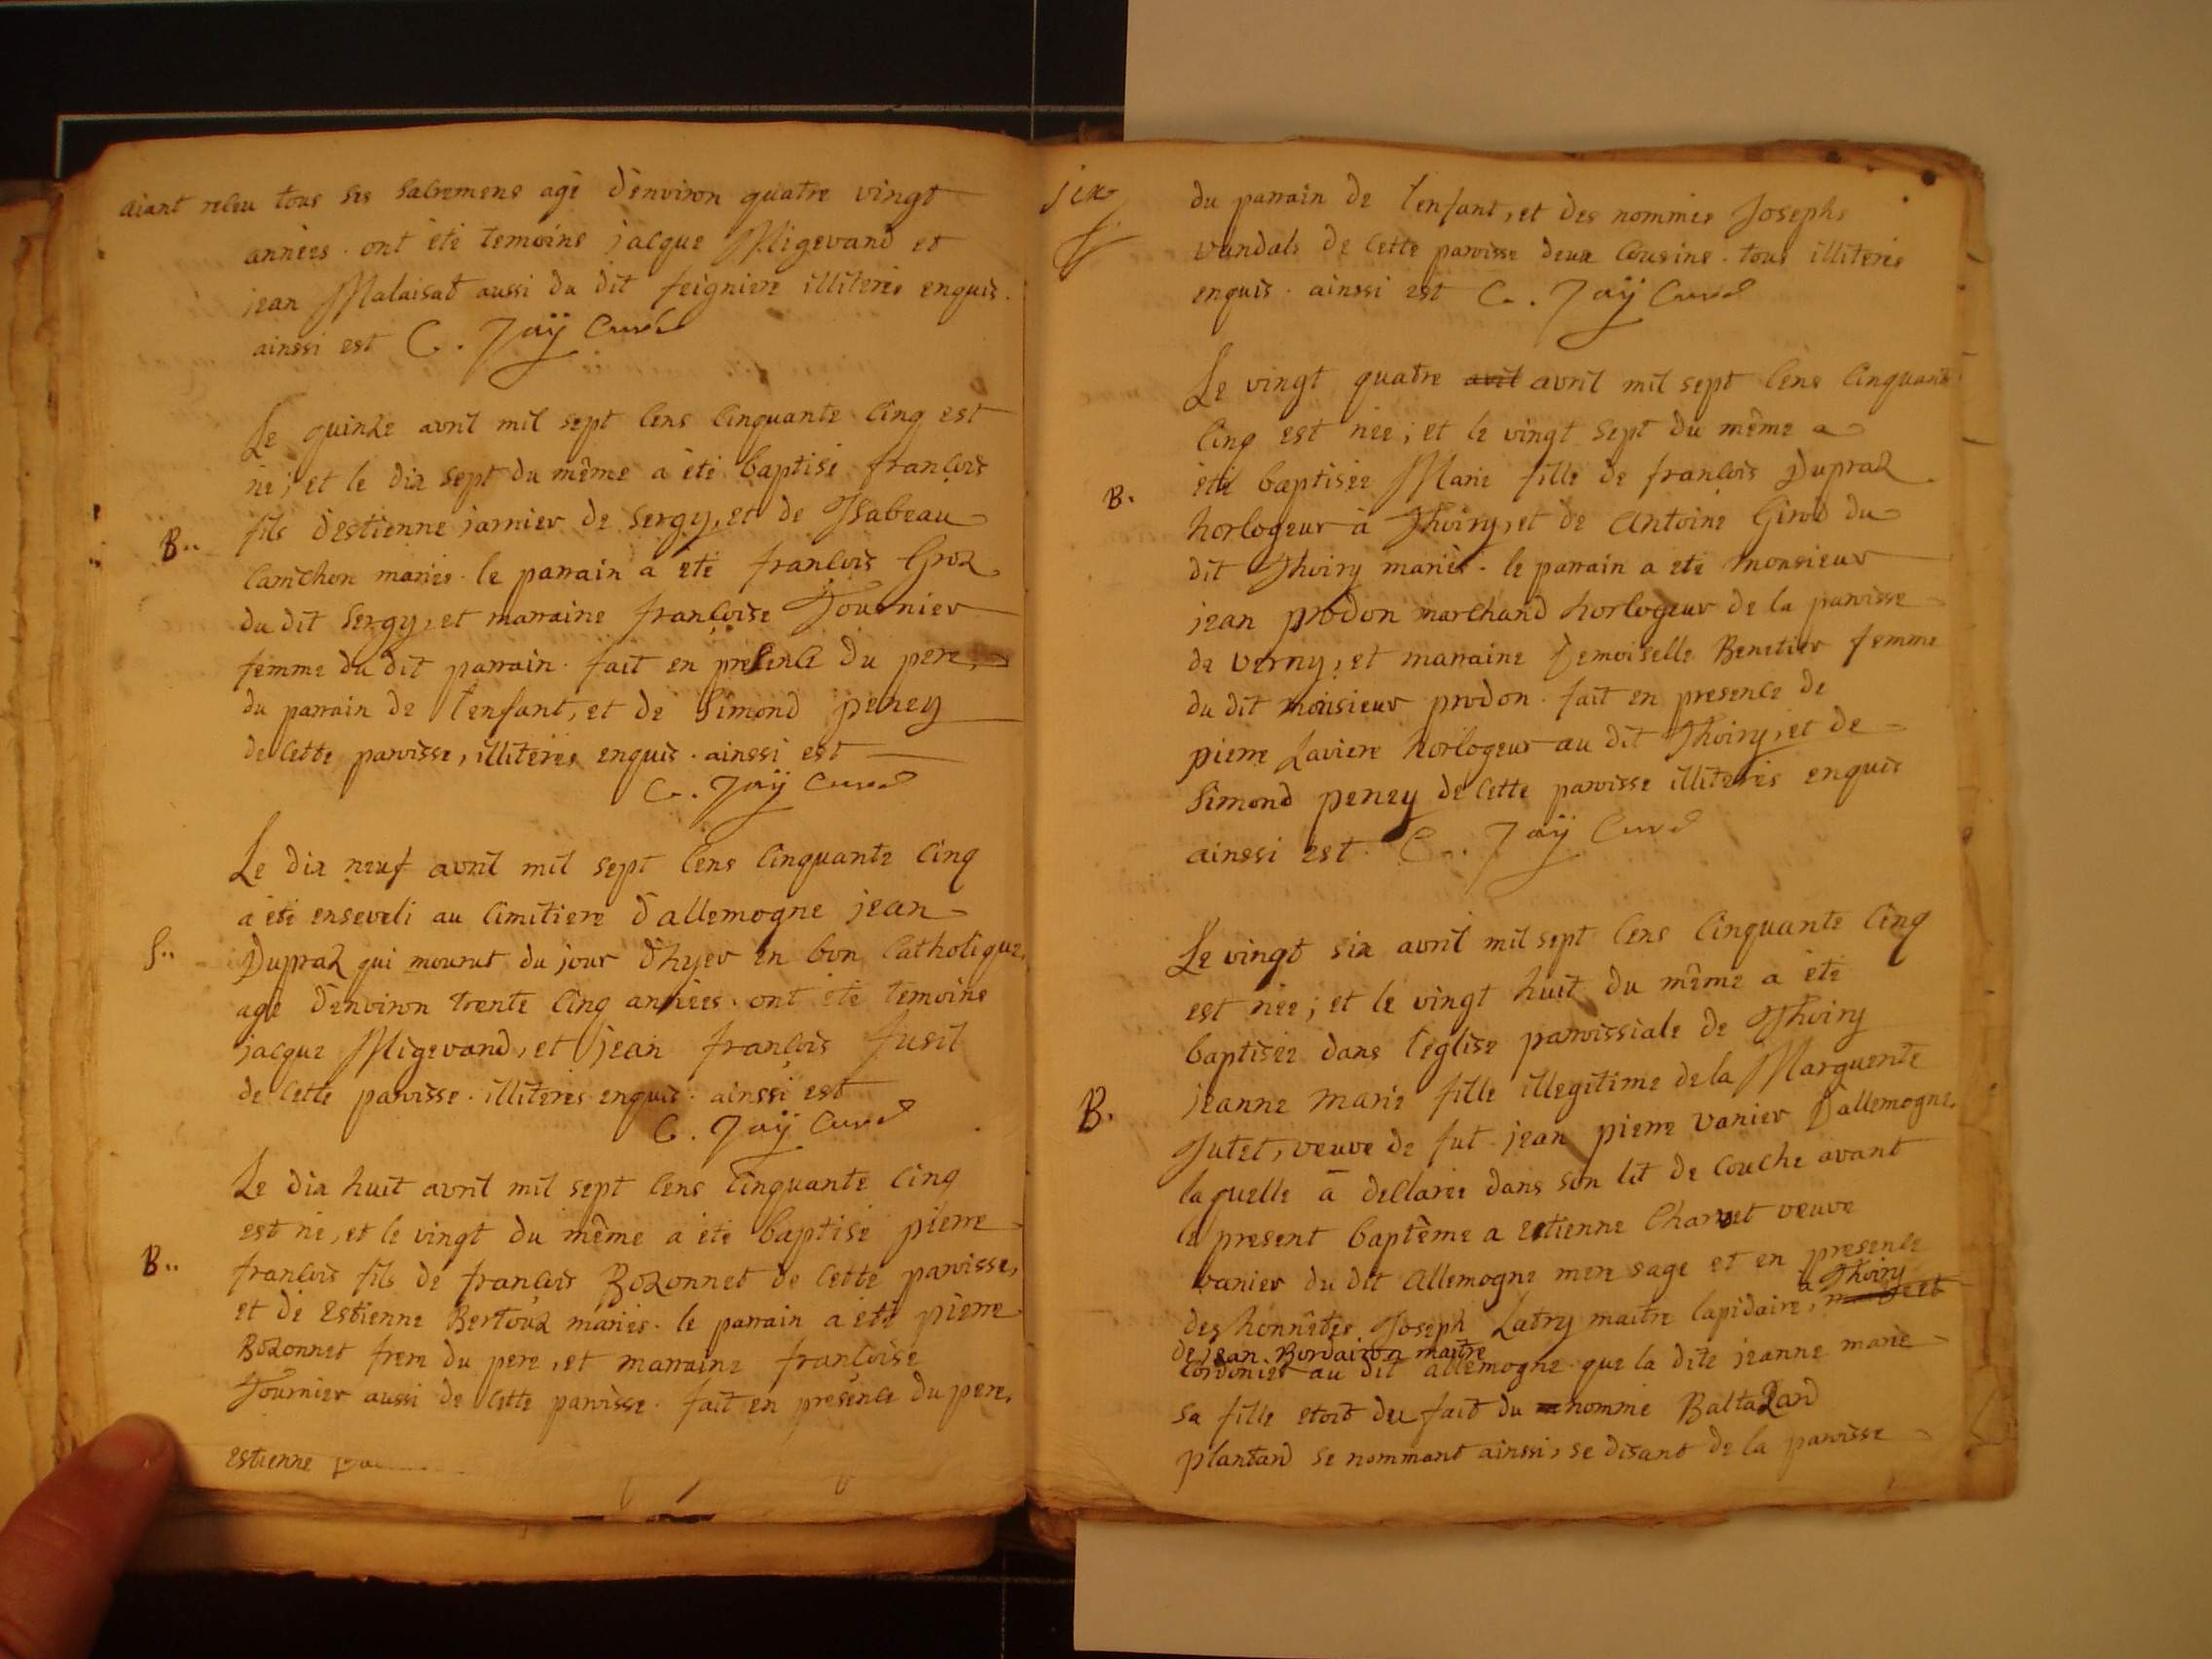 aiant releu tous ses sacremens agé d'environ quatre vingt
années. ont été temoins jacque Migevand et
jean Malaisat aussi du dit feigniere illiterés enquis.
ainssi est C. Jaÿ Curé
Le quinze avril mil sept cens cinquante cinq est
né; et le dix sept du même a été baptisé françois
B..
fils d'estienne jarnier de sergy, et de Isabeau
Canichon mariés. le parrain a été françois Groz
du dit sergy, et marraine françoise Tournier
femme du dit parrain. fait en presence du pere,
du parrain de l'enfant, et de Simond peney
de cette paroisse, illiterés enquis. ainssi est
C. Jaÿ Curé
Le dix neuf avril mil sept cens cinquante cinq
a été enseveli au cimitiere d'allemogne jean
S..
Dupraz qui mourut du jour d'hyer en bon Catholique,
agé d'environ trente cinq années. ont été temoins
jacque Migevand, et jean françois fusil
de cette paroisse. illiterés enquis. ainssi est
C. Jaÿ Curé
Le dix huit avril mil sept cens cinquante cinq
est né, et le vingt du même a été baptisé pierre
B..
françois fils de françois Bozonnet de cette paroisse,
et de Estienne Bertouz mariés. le parrain a été pierre
Bozonnet frere du pere, et marraine françoise
Tournier aussi de cette paroisse. fait en presence du pere,
estienne
six
du parrain de l'enfant, et des nommés Josephs
vandals de cette paroisse deux cousins. tous illiterés
enquis. ainssi est C. Jaÿ Curé
Le vingt quatre avil avril mil sept cens cinquante
cinq est née; et le vingt sept du même a
B.
été baptisée Marie fille de françois Dupraz
horlogeur à Thoiry, et de Antoine Girod du
dit Thoiry mariés. le parrain a été monsieur
jean prodon marchand horlogeur de la paroisse
de verny, et marraine Demoiselle Benetier femme
du dit monsieur prodon. fait en presence de
pierre Laviere horlogeur au dit Thoiry, et de
Simond peney de cette paroisse illiterés enquis
ainssi est. C. Jaÿ Curé
Le vingt six avril mil sept cens cinquante cinq
est née; et le vingt huit du même a été
baptisée dans l'eglise paroissiale de Thoiry
B.
jeanne marie fille illegitime de la Marguerite
Jutet, veuve de fut jean pierre vanier D'allemogne,
laquelle a declarée dans son lit de couche avant
le present baptême a estienne Charvet veuve
vanier du dit Allemogne mere sage et en presence
des honnêtes Joseph Latry maitre lapidaire, a Thoiry et
de jean Bordairon maitre
cordonier au dit allemogne que la dite jeanne marie
sa fille etoit du fait du nommé Baltazard
plantard se nommant ainssi, se disant de la paroisse